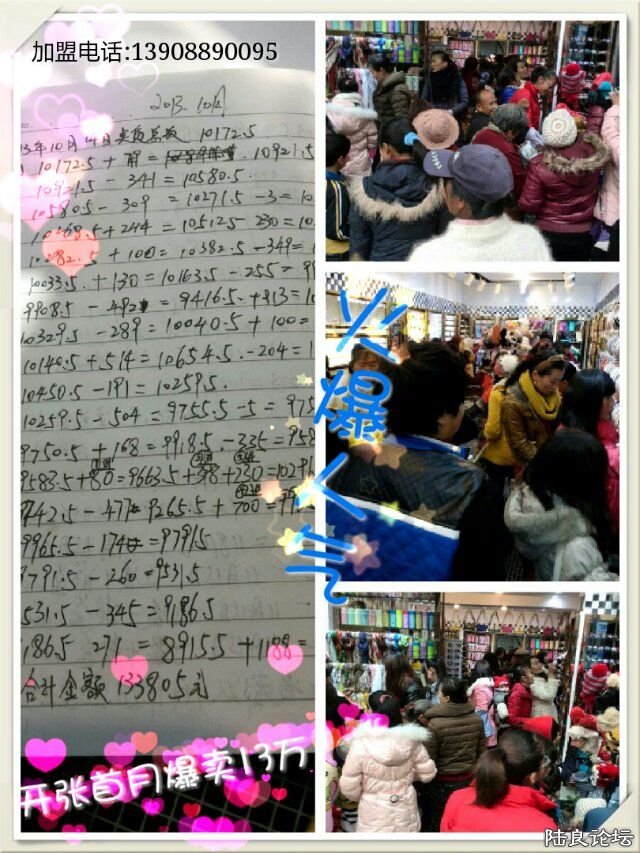 加盟电话:13908890095
2013.10月
13年10月14日卖货总数 10172.5
10172.5 + = 10921.5
10921.5 - 341 = 10580.5
10580.5 - 309 = 10271.5 - 3 = 10
10268.5 + 244 = 10512.5 - 230 = 10
10282.5 + 100 = 10382.5 - 349 = 1
10033.5 + 130 = 10163.5 - 255 = 99
9908.5 - 492 = 9416.5 + 913 = 10
10329.5 - 289 = 10040.5 + 100 =
10140.5 + 514 = 10654.5 - 204 = 1
10450.5 - 191 = 10259.5
10259.5 - 504 = 9755.5 - 5 = 975
9750.5 + 168 = 9918.5 - 335 = 958
9583.5 + 80 = 9663.5 + 398 + 230 = 10296
9742.5 - 477 = 9265.5 + 700 = 99
9965.5 - 174 = 9791.5
9791.5 - 260 = 9531.5
531.5 - 345 = 9186.5
186.5 271 = 8915.5 + 1188 =
合计金额 133805元
火爆人气
开张首月爆卖13万
陆良论坛